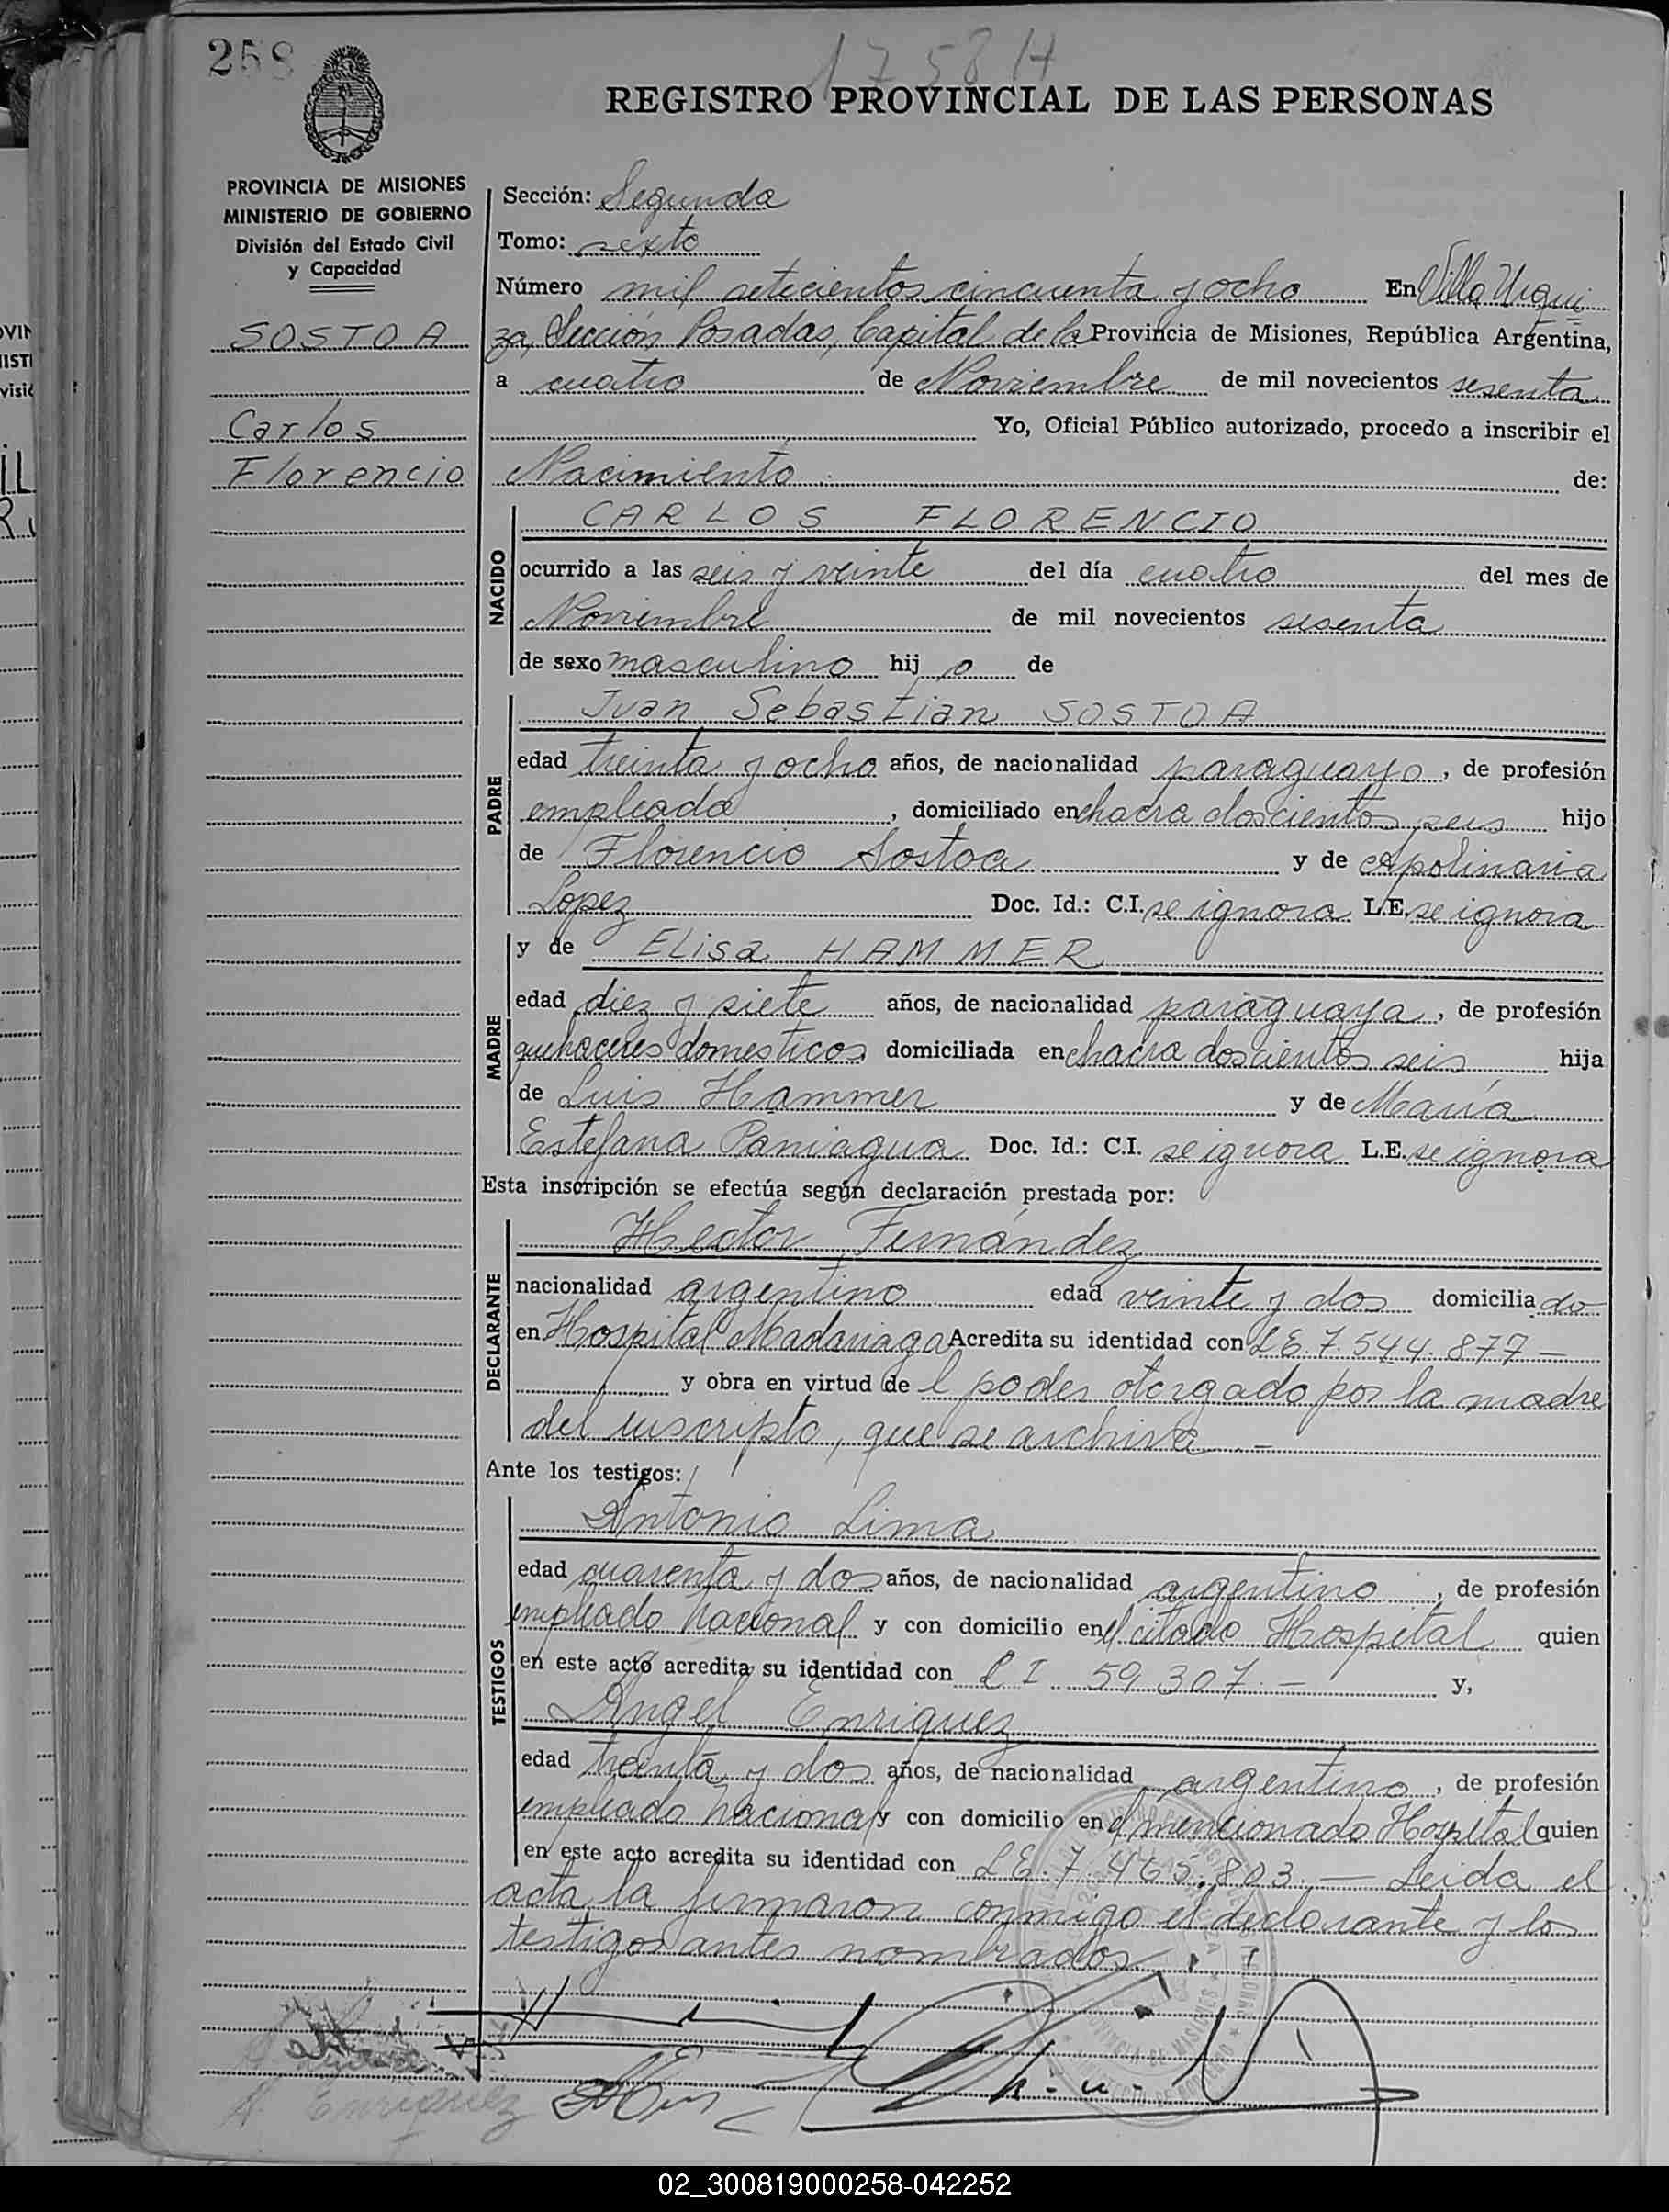 258
1758 H
REGISTRO PROVINCIAL DE LAS PERSONAS
PROVINCIA DE MISIONES
MINISTERIO DE GOBIERNO
División del Estado Civil
y Capacidad
SOSTOA
Carlos
Florencio
Sección: Segunda
Tomo: sexto
Número mil setecientos cincuenta y ocho En Villa Urqui
za, Sección Posadas, Capital de la Provincia de Misiones, República Argentina,
a cuatro de Noviembre de mil novecientos sesenta
Yo, Oficial Público autorizado, procedo a inscribir el
Nacimiento de:
NACIDO
CARLOS FLORENCIO
ocurrido a las seis y veinte del día cuatro del mes de
Noviembre de mil novecientos sesenta
de sexo masculino hijo de
PADRE
Juan Sebastian SOSTOA
edad treinta y ocho años, de nacionalidad paraguayo, de profesión
empleado, domiciliado en chacra doscientos seis hijo
de Florencio Sostoa y de Apolinaria
Lopez Doc. Id.: C.I. se ignora L.E. se ignora
MADRE
y de Elisa HAMMER
edad diez y siete años, de nacionalidad paraguaya, de profesión
quehaceres domesticos domiciliada en chacra doscientos seis hija
de Luis Hammer y de María
Estefana Paniagua Doc. Id.: C.I. se ignora L.E. se ignora
Esta inscripción se efectúa según declaración prestada por:
DECLARANTE
Hector Fernández
nacionalidad argentino edad veinte y dos domiciliado
en Hospital Madariaga Acredita su identidad con L E. 7.544.877 —
y obra en virtud de l poder otorgado por la madre
del inscripto, que se archiva. —
Ante los testigos:
TESTIGOS
Antonio Lima
edad cuarenta y dos años, de nacionalidad argentino, de profesión
empleado nacional y con domicilio en el citado Hospital quien
en este acto acredita su identidad con C I 59.307. — y,
Angel Enriquez
edad treinta y dos años, de nacionalidad argentino, de profesión
empleado nacional y con domicilio en el mencionado Hospital quien
en este acto acredita su identidad con L E. 7.465.803. — Leida el
acta la firmaron conmigo el declarante y los
testigos antes nombrados.
A Enriquez
02_300819000258-042252